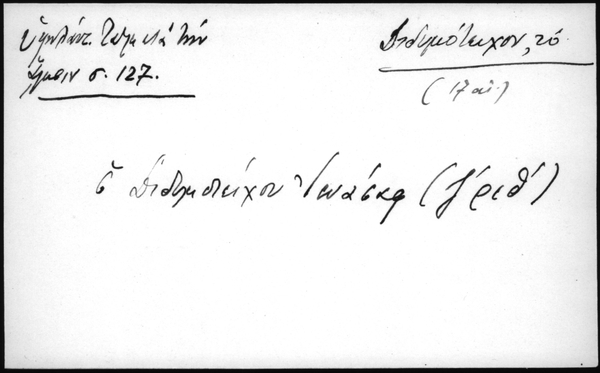 Ὑψηλάντ. Τὰ μετὰ τὴν
ἅλωσιν σ. 127.
Διδυμότειχον, τό
(17 αἰ.)
ὁ Διδυμοτείχου Ἰωάσαφ